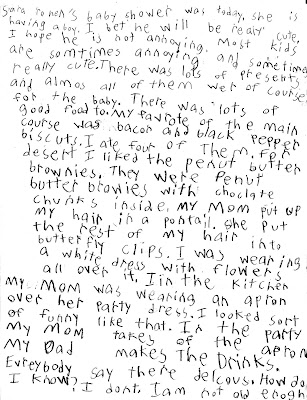 Sara ronen's baby shower was today, she is
having a boy. I bet he will be realy cute,
I hope he is not annoying. Most kids
are somtimes annoying and sometime
really cute. There was lots of presents,
and almos all of them wer of course
for the baby. There was lots of
good food to. My favrote of the main
course was bacon and black pepper
biscuts. I ate four of Them. For
desert I liked the penut butter
brownies. They were Penut
butter browies with choclate
chunks inside. my Mom put up
my hair in a pontail. she put
the rest of my hair into
butterfly clips. I was wearing
a white dress with flowers
all over it. Iin the kitchen
my Mom was wearing an apron
over her party dress. I looked sort
of funny like that. In the party
My Mom takes of the apron
My Dad makes The Drinks.
Evreybody say there delcous. How do
I know? I dont. I am not old enogh